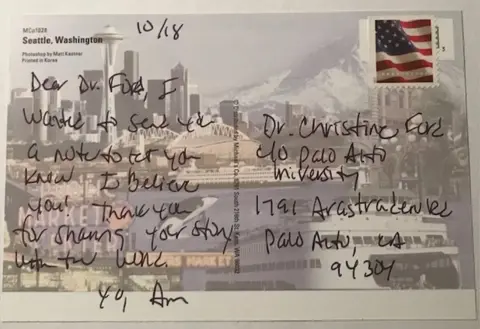 MCo1028
Seattle, Washington
Photography by Matt Kazmer
Printed in Korea
10/18
Dear Dr. Ford, I
wanted to send you
a note to let you
know I believe
you! Thank you
for sharing your story
with the world.
Dr. Christine Ford
c/o Palo Alto
University
1791 Arastradero Rd
Palo Alto, CA
94304
MARKET